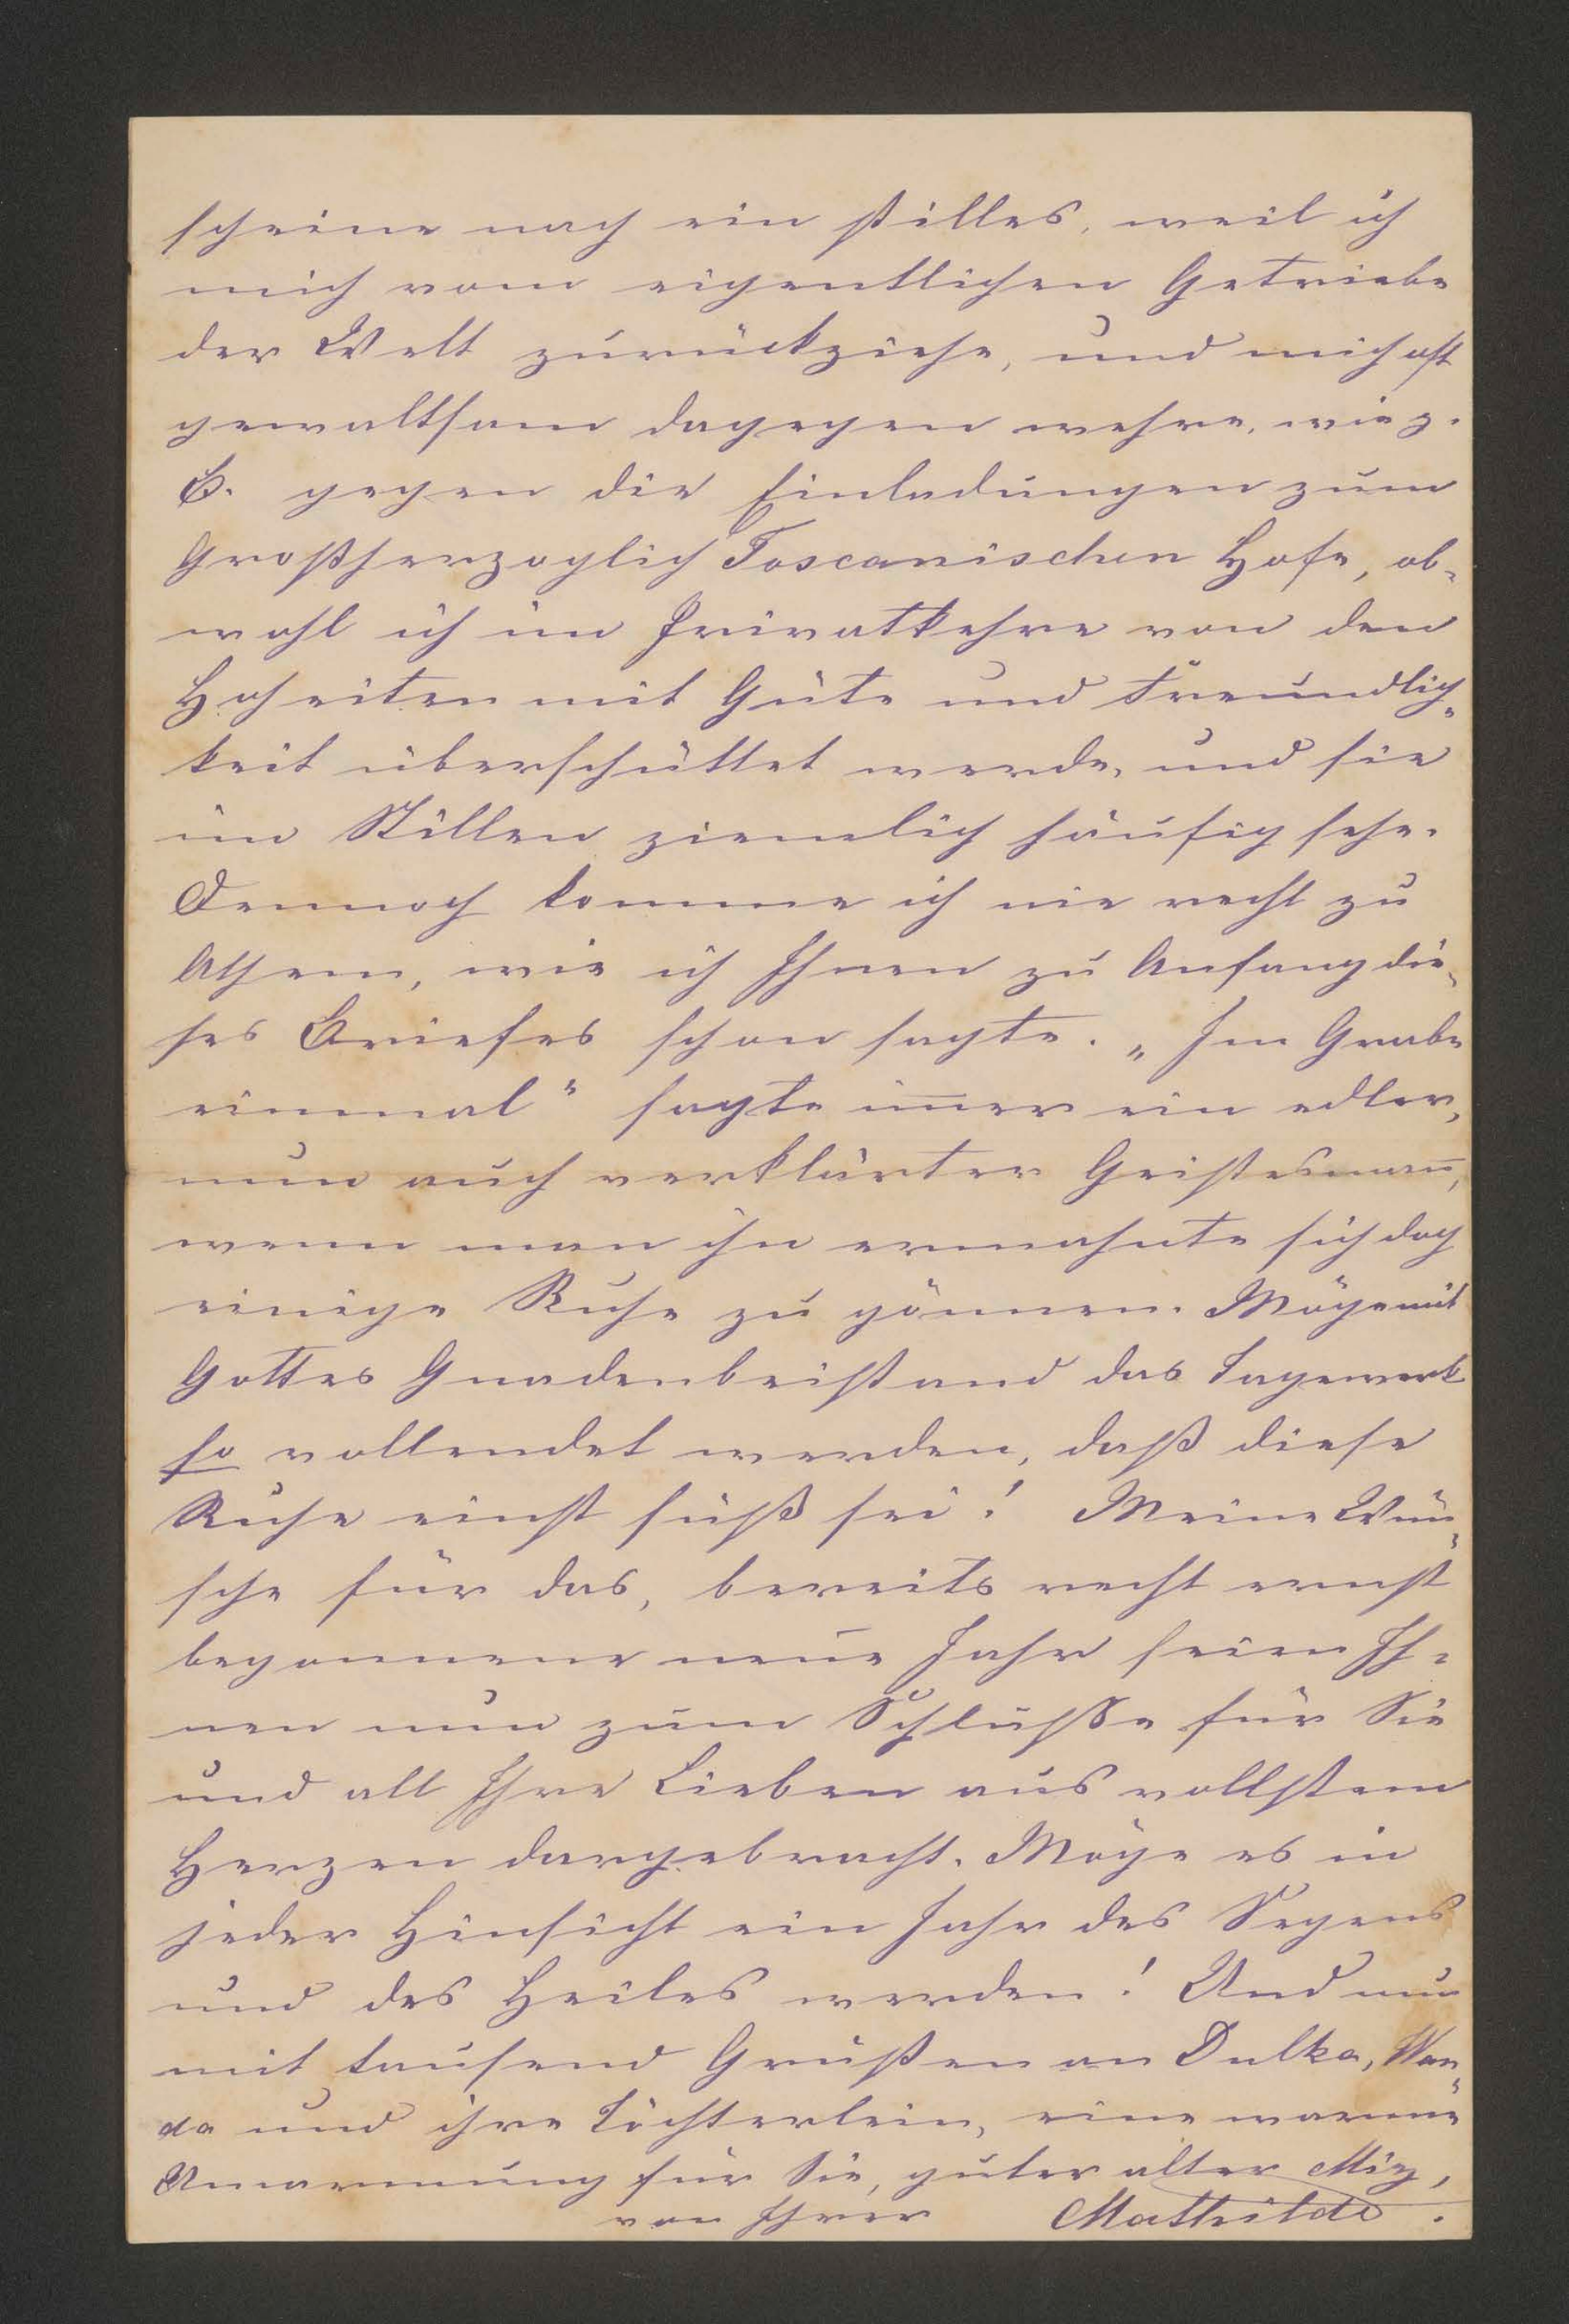 scheine nach ein stilles, weil ich
mich vom eigentlichen Getriebe
der Welt zurückziehe, und mich oft
gewaltsam dagegen wehre, wie z.
B. gegen die Einladungen zum
Großherzoglich Toscanischen Hofe, ob-
wohl ich im Privatkehre von den
Hoheiten mit Güte und Freundlich-
keit überschüttet werde, und sie
im Stillen ziemlich häufig sehe.
Dennoch komme ich nie recht zu
Athem, wie ich Ihnen zu Anfang die-
ses Briefes schon sagte. „Im Grabe
einmal" sagte im̄er ein edler,
nun auch verklärter Geistesman̄,
wenn man ihn ermahnte sich doch
einige Ruhe zu gönnen. Möge mit
Gottes Gnadenbeistand das Tagewerk
so vollendet werden, daß diese
Ruhe einst süß sei! Meine Wün-
sche für das, bereits recht ernst
begonnene neue Jahr seien Ih-
nen nun zum Schluße für Sie
und all Ihre Lieben aus vollstem
Herzen dargebracht. Möge es in
jeder Hinsicht ein Jahr des Segens
und des Heiles werden! Und nun
mit tausend Grüßen an Dulka, Wan-
da und ihre Töchterlein, eine warme
Umarmung für Sie, guter alter Miz,
von Ihrer Mathilde.